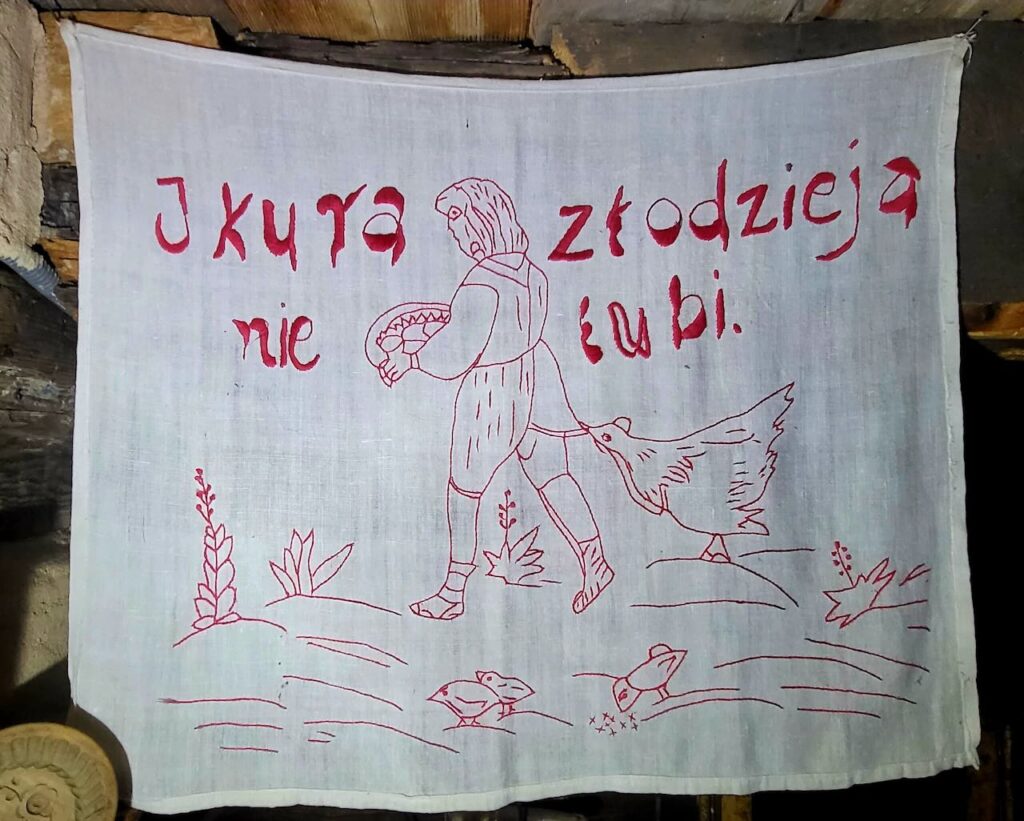 J kura złodzieja
nie łubi.